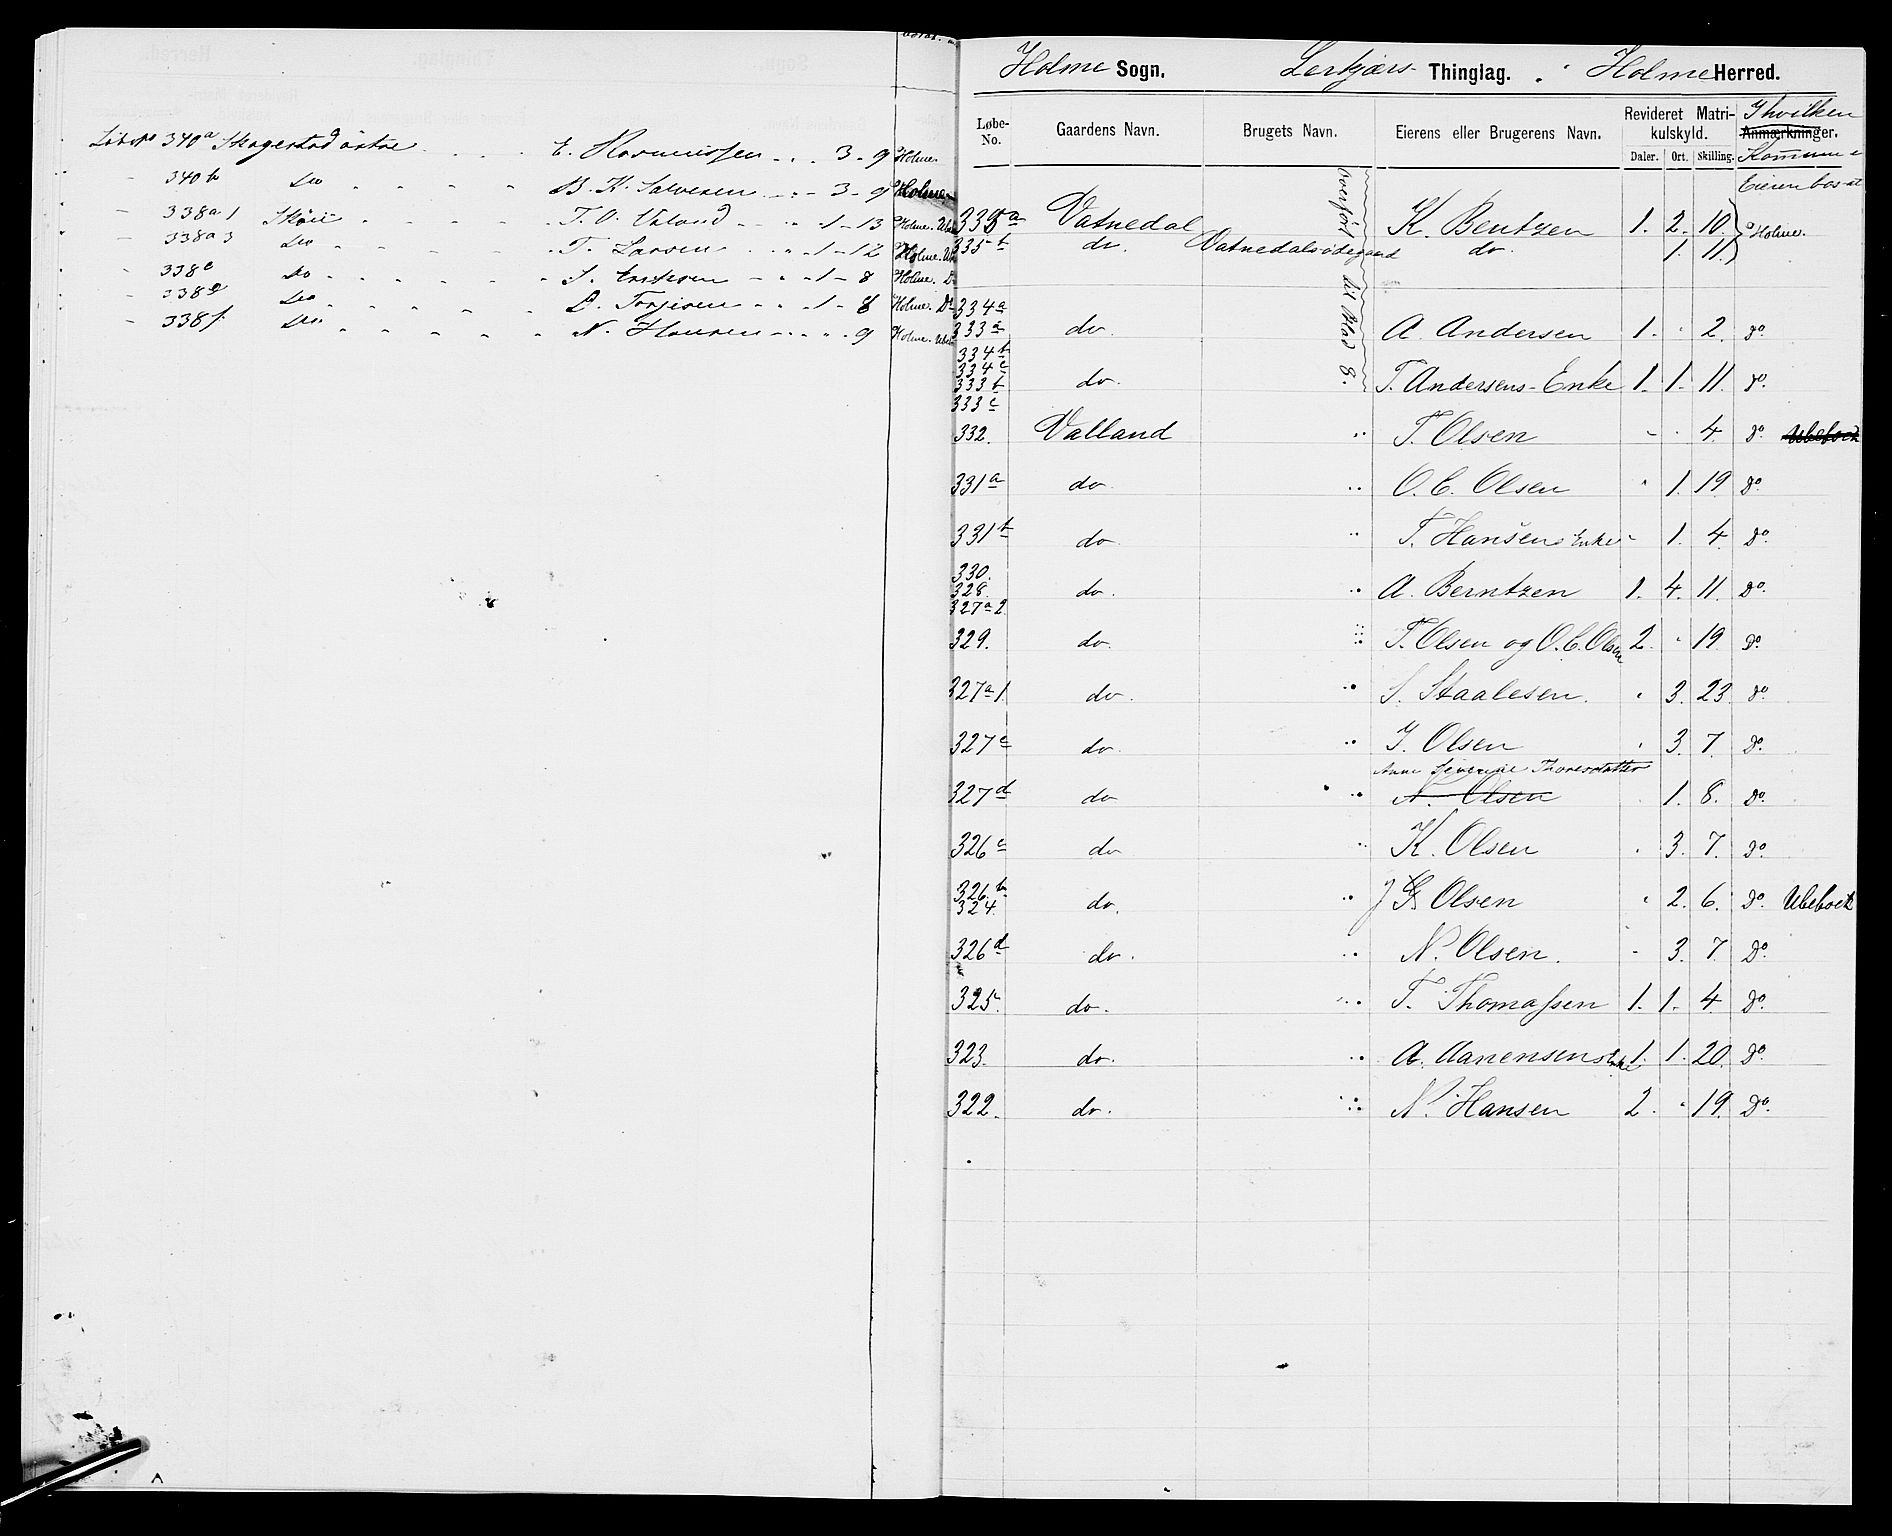 Løb No 340a Skogestad östre . . . . E. Rasmussen . . . 3 - 9 Holme.
" 340b Do . . . . . B. K. Salvesen . . - 3 - 9 Holme
" 338a1 Skøie . . . . . T. O. Valand - . . - 1 - 13 Holme.
" 338a3 Do . . . . . T. Larsen . . . 1 - 12 Holme.
" 338c Do . . . . . S. Eriksen - . . 1 - 8 Holme. Do
" 338e Do . . . . . D. Torjesen . . - 1 - 8 Holme. Do
" 338f. Do . . . . . N. Hansen . . . . . 9 Holme.
Holme Sogn. Lerkjærs Thinglag. Holme Herred.
Løbe-No. Gaardens Navn. Brugets Navn. Eierens eller Brugerens Navn. Revideret Matrikulskyld. Daler. Ort. Skilling. Anmærkninger. I hvilken Kommune Eieren bosat
overført til Blad 8.
335a Vatnedal K. Bentzen 1. 2. 10. Holme.
335b do. Vatnedalsødegaard do. 1. 11.
334a
333a do. A. Andersen 1. " 2. Do.
334b
334c
333b do. T. Andersens - Enke 1. 1. 11. Do.
333c
332. Valland " T. Olsen - " 4. Do. Ubeboet
331a do. " O. C. Olsen " 1. 19. Do.
331b do. " T. Hansens Enke - 1. 4. Do.
330.
328. do. " A. Berntzen 1. 4. 11. Do.
327a2.
329. do. T. Olsen og O. C. Olsen 2. " 19. Do.
327a1. do. S. Staalesen. " 3. 23. Do.
327c do. J. Olsen " 3. 7. Do.
Anne Severine Thoresdatter
327d do N. Olsen 1. 8. Do.
326c do K. Olsen " 3. 7. Do.
326b
324. do. J G Olsen " 2. 6. Do. Ubeboet
326d do. N. Olsen. - 3. 7. Do.
325. do. T. Thomassen 1. 1. 4. Do.
323. do. A. Aanensens Enke 1. 1. 20. Do.
322. do. N. Hansen 2. " 19. Do.